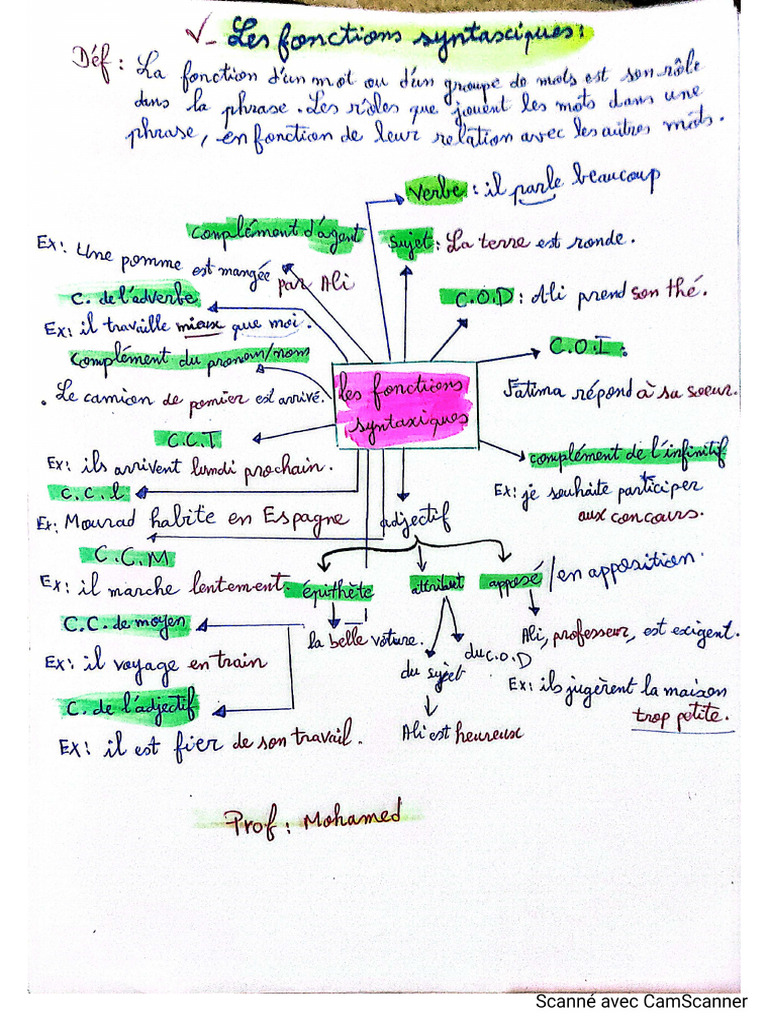 Les fonctions syntasciques :
Déf : La fonction d'un mot ou d'un groupe de mots est son rôle
dans la phrase. Les rôles que jouent les mots dans une
phrase, en fonction de leur relation avec les autres mots.
Verbe : il parle beaucoup
complément d'agent
Ex : Une pomme est mangée
par Ali
Sujet : La terre est ronde.
C. de l'adverbe
Ex : il travaille mieux que moi.
C.O.D : Ali prend son thé.
C.O.I :
Fatima répond à sa soeur.
Complément du pronom/nom
. Le camion de pomier est arrivé.
les fonctions
syntaxiques
C.C.T
Ex : ils arrivent lundi prochain.
complément de l'infinitif
Ex : je souhaite participer
aux concours.
C.C.l
Ex : Mourad habite en Espagne
adjectif
C.C.M
Ex : il marche lentement.
épithète
attribut
apposé / en apposition.
la belle voiture.
du sujet
du C.O.D
Ali, professeur, est exigent.
C.C. de moyen
Ex : il voyage en train
Ex : ils jugèrent la maison
trop petite.
Ali est heureux
C. de l'adjectif
Ex : il est fier de son travail.
Prof : Mohamed
Scanné avec CamScanner